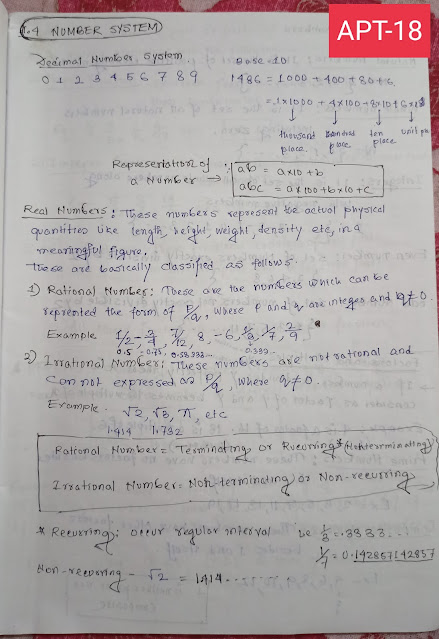 APT-18
1.4 NUMBER SYSTEM
Decimal Number System Base-10
0 1 2 3 4 5 6 7 8 9 1486 = 1000 + 400 + 80 + 6
= 1x1000 + 4x100 + 8x10 + 6x1
thousand place hundred place ten place unit
Representation of a Number → ab = ax10 + b
abc = ax100 + bx10 + c
Real Numbers: These numbers represent the actual physical
quantities like length, height, weight, density etc, in a
meaningful figure.
These are basically classified as follows.
1) Rational Number: These are the numbers which can be
reprented the form of P/q, where P and q are integes and q≠0.
Example 1/2, -3/4, 7/12, 8, -6, 1/3, 1/7, 2/9
0.5 -0.75, 0.58333... 0.333..
2) Irrational Number: These numbers are not rational and
Can not expressed as P/q, where q≠0.
Example. √2, √3, π, etc
1.414 1.732
Rational Number = Terminating or Recurring* (Nonterminating)
Irrational Number = Non terminating or Non-recurring
* Recurring: occur regular interval ie 1/3 = .3333...
1/7 = 0.142857142857
Non-recurring - √2 = 1.414...